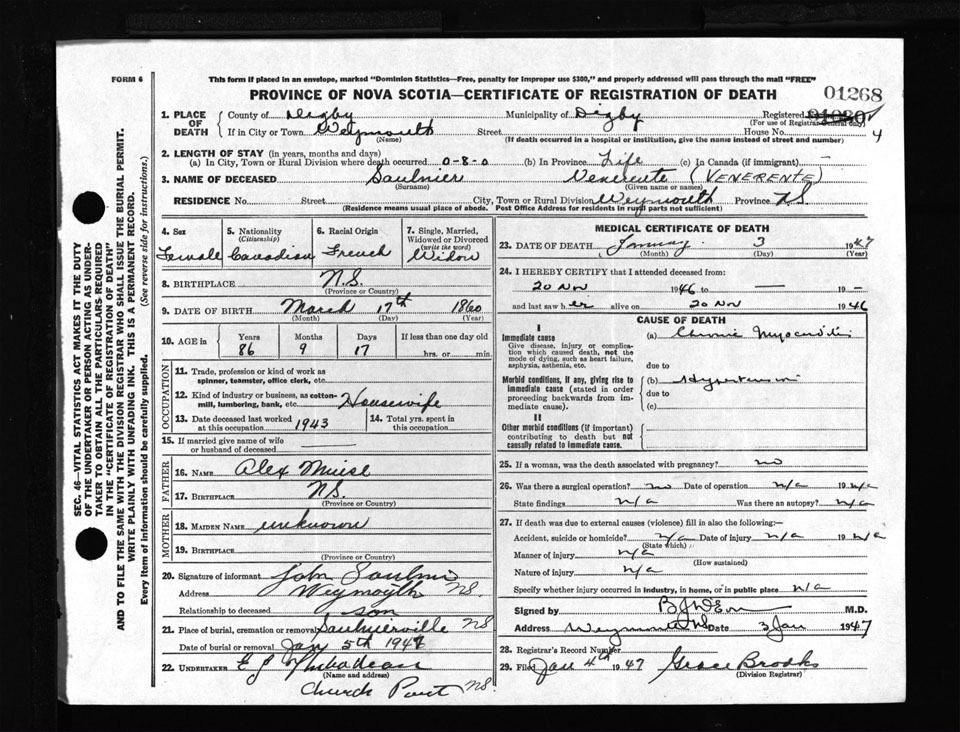 FORM 6
This form if placed in an envelope, marked "Dominion Statistics—Free, penalty for improper use $300," and properly addressed will pass through the mail "FREE"
PROVINCE OF NOVA SCOTIA—CERTIFICATE OF REGISTRATION OF DEATH
01268
1. PLACE OF DEATH
County of Digby Municipality of Digby Registered
(For use of Registrar General only)
If in City or Town Weymouth Street House No. 4
(Name) (If death occurred in a hospital or institution, give the name instead of street and number)
2. LENGTH OF STAY (in years, months and days)
(a) In City, Town or Rural Division where death occurred 0-8-0 (b) In Province Life (c) In Canada (if immigrant) —
3. NAME OF DECEASED Saulnier Venerente (VENERENTE)
(Surname) (Given name or names)
RESIDENCE No. Street City, Town or Rural Division Weymouth Province NS
(Residence means usual place of abode. Post Office Address for residents in rural parts not sufficient)
4. Sex
Female
5. Nationality
(Citizenship)
Canadian
6. Racial Origin
French
7. Single, Married, Widowed or Divorced
(write the word)
Widow
8. BIRTHPLACE N.S.
(Province or Country)
9. DATE OF BIRTH March 17th 1860
(Month) (Day) (Year)
10. AGE in
Years Months Days If less than one day old
86 9 17 hrs. or min.
OCCUPATION
11. Trade, profession or kind of work as spinner, teamster, office clerk, etc.
12. Kind of industry or business, as cotton-mill, lumbering, bank, etc. Housewife
13. Date deceased last worked at this occupation 1943
14. Total yrs. spent in this occupation
15. If married give name of wife or husband of deceased
FATHER
16. NAME Alex Muise
17. BIRTHPLACE N.S.
(Province or Country)
MOTHER
18. MAIDEN NAME unknown
19. BIRTHPLACE
(Province or Country)
20. Signature of informant John Saulnier
Address Weymouth NS.
Relationship to deceased son
21. Place of burial, cremation or removal Saulnierville NS
Date of burial or removal Jan 5th 1947
22. UNDERTAKER E J
(Name and address)
Church Point NS.
MEDICAL CERTIFICATE OF DEATH
23. DATE OF DEATH January 3 1947
(Month) (Day) (Year)
24. I HEREBY CERTIFY that I attended deceased from:
20 Nov 1946 to — 19 —
and last saw her alive on 20 Nov 1946
CAUSE OF DEATH
I
Immediate cause
Give disease, injury or complication which caused death, not the mode of dying, such as heart failure, asphyxia, asthenia, etc.
(a) Chronic Myocarditis
due to
Morbid conditions, if any, giving rise to immediate cause (stated in order proceeding backwards from immediate cause).
(b) Hypertension
due to
(c)
II
Other morbid conditions (if important) contributing to death but not causally related to immediate cause.
25. If a woman, was the death associated with pregnancy? no
26. Was there a surgical operation? no Date of operation n/a 19 n/a
State findings n/a Was there an autopsy? n/a
27. If death was due to external causes (violence) fill in also the following:—
Accident, suicide or homicide? n/a Date of injury n/a 19 n/a
(State which)
Manner of injury n/a
(How sustained)
Nature of injury n/a
Specify whether injury occurred in industry, in home, or in public place n/a
Signed by M.D.
Address Weymouth NS Date 3 Jan 1947
28. Registrar's Record Number
29. Filed Jan 4th 1947 Grace Brooks
(Division Registrar)
SEC. 46—VITAL STATISTICS ACT MAKES IT THE DUTY
OF THE UNDERTAKER OR PERSON ACTING AS UNDER-
TAKER TO OBTAIN ALL THE PARTICULARS REQUIRED
IN THE "CERTIFICATE OF REGISTRATION OF DEATH"
AND TO FILE THE SAME WITH THE DIVISION REGISTRAR WHO SHALL ISSUE THE BURIAL PERMIT.
WRITE PLAINLY WITH UNFADING INK. THIS IS A PERMANENT RECORD.
Every item of information should be carefully supplied. (See reverse side for instructions.)